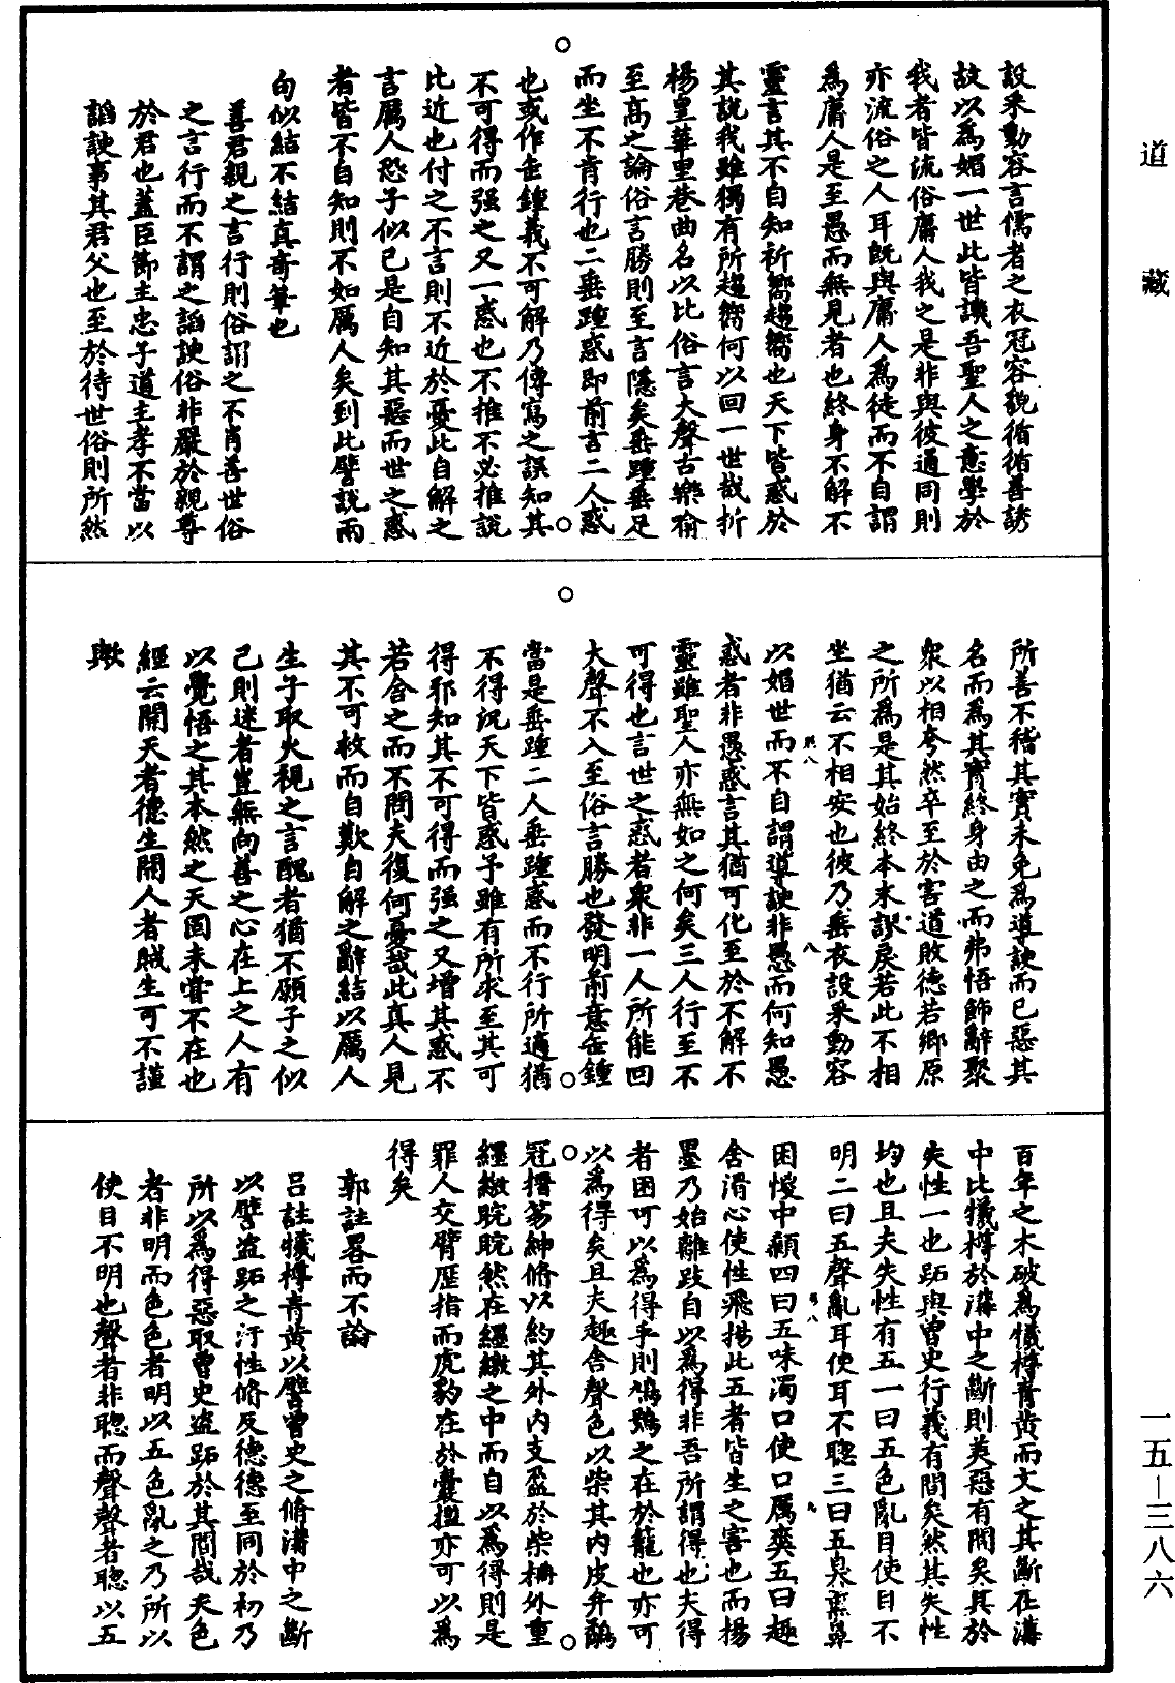 設釆動容言儒者之衣冠容貌循循善誘
故以為媚一世此皆譏吾聖人之意學於
我者皆流俗庸人我之是非與彼通同則
亦流俗之人耳既與庸人為徒而不自謂
為庸人是至愚而無見者也終身不解不
靈言其不自知祈嚮趨嚮也天下皆惑於
其說我雖獨有所趨嚮何以回一世哉折
楊皇華里巷曲名以比俗言大聲古樂喻
至高之論俗言勝則至言隱矣垂踵垂足
而坐不肯行也二垂踵惑即前言二人惑
也或作缶鍾義不可解乃傳寫之誤知其
不可得而强之又一惑也不推不必推說
比近也付之不言則不近於憂此自解之
言厲人恐子似己是自知其惡而世之惑
者皆不自知則不如厲人矣到此譬說兩
句似結不結真奇筆也
善君親之言行則俗謂之不肖善世俗
之言行而不謂之諂諛俗非嚴於親尊
於君也蓋臣節主忠子道主孝不當以
諂諛事其君父也至於待世俗則所然
所善不稽其實未免為導諛而已惡其
名而為其實終身由之而弗悟飾辭聚
衆以相夸然卒至於害道敗德若鄉原
之所為是其始終本末謬戾若此不相
坐猶云不相安也彼乃垂衣設釆動容
以媚世而不自謂導諛非愚而何知愚
惑者非愚惑言其猶可化至於不解不
靈雖聖人亦無如之何矣三人行至不
可得也言世之惑者衆非一人所能回
大聲不入至俗言勝也發明前意缶鍾
當是垂踵二人垂踵惑而不行所適猶
不得況天下皆惑予雖有所求至其可
得邪知其不可得而强之又增其惑不
若舍之而不問夫復何憂哉此真人見
其不可救而自歎自解之辭結以厲人
生子取火視之言醜者猶不願子之似
己則迷者豈無向善之心在上之人有
以覺悟之其本然之天固未嘗不在也
經云開天者德生開人者賊生可不謹
歟
百年之木破為犧樽青黃而文之其斷在溝
中比犧樽於溝中之斷則美惡有間矣其於
失性一也跖與曾史行義有間矣然其失性
均也且夫失性有五一曰五色亂目使目不
明二曰五聲亂耳使耳不聰三曰五臭熏鼻
困惾中顙四曰五味濁口使口厲爽五曰趣
舍滑心使性飛揚此五者皆生之害也而揚
墨乃始離跂自以為得非吾所謂得也夫得
者困可以為得乎則鳩鴞之在於籠也亦可
以為得矣且夫趣舍聲色以柴其內皮弁鷸
冠搢笏紳脩以約其外內支盈於柴柵外重
纆繳睆睆然在纆繳之中而自以為得則是
罪人交臂歷指而虎豹在於囊檻亦可以為
得矣
郭註畧而不論
呂註犧樽青黃以譬曾史之脩溝中之斷
以譬盜跖之汙性脩反德德至同於初乃
所以為得惡取曾史盜跖於其間哉夫色
者非明而色色者明以五色亂之乃所以
使目不明也聲者非聰而聲聲者聰以五
道藏
一五—三八六